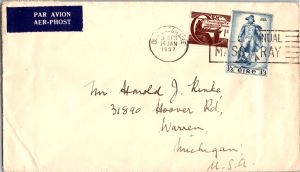 PAR AVION
AER-PHOST
14 JAN
1957
ÉIRE
Mr Harold J. Rinke,
31890 Hoover Rd,
Warren,
Michigan
U.S.A.